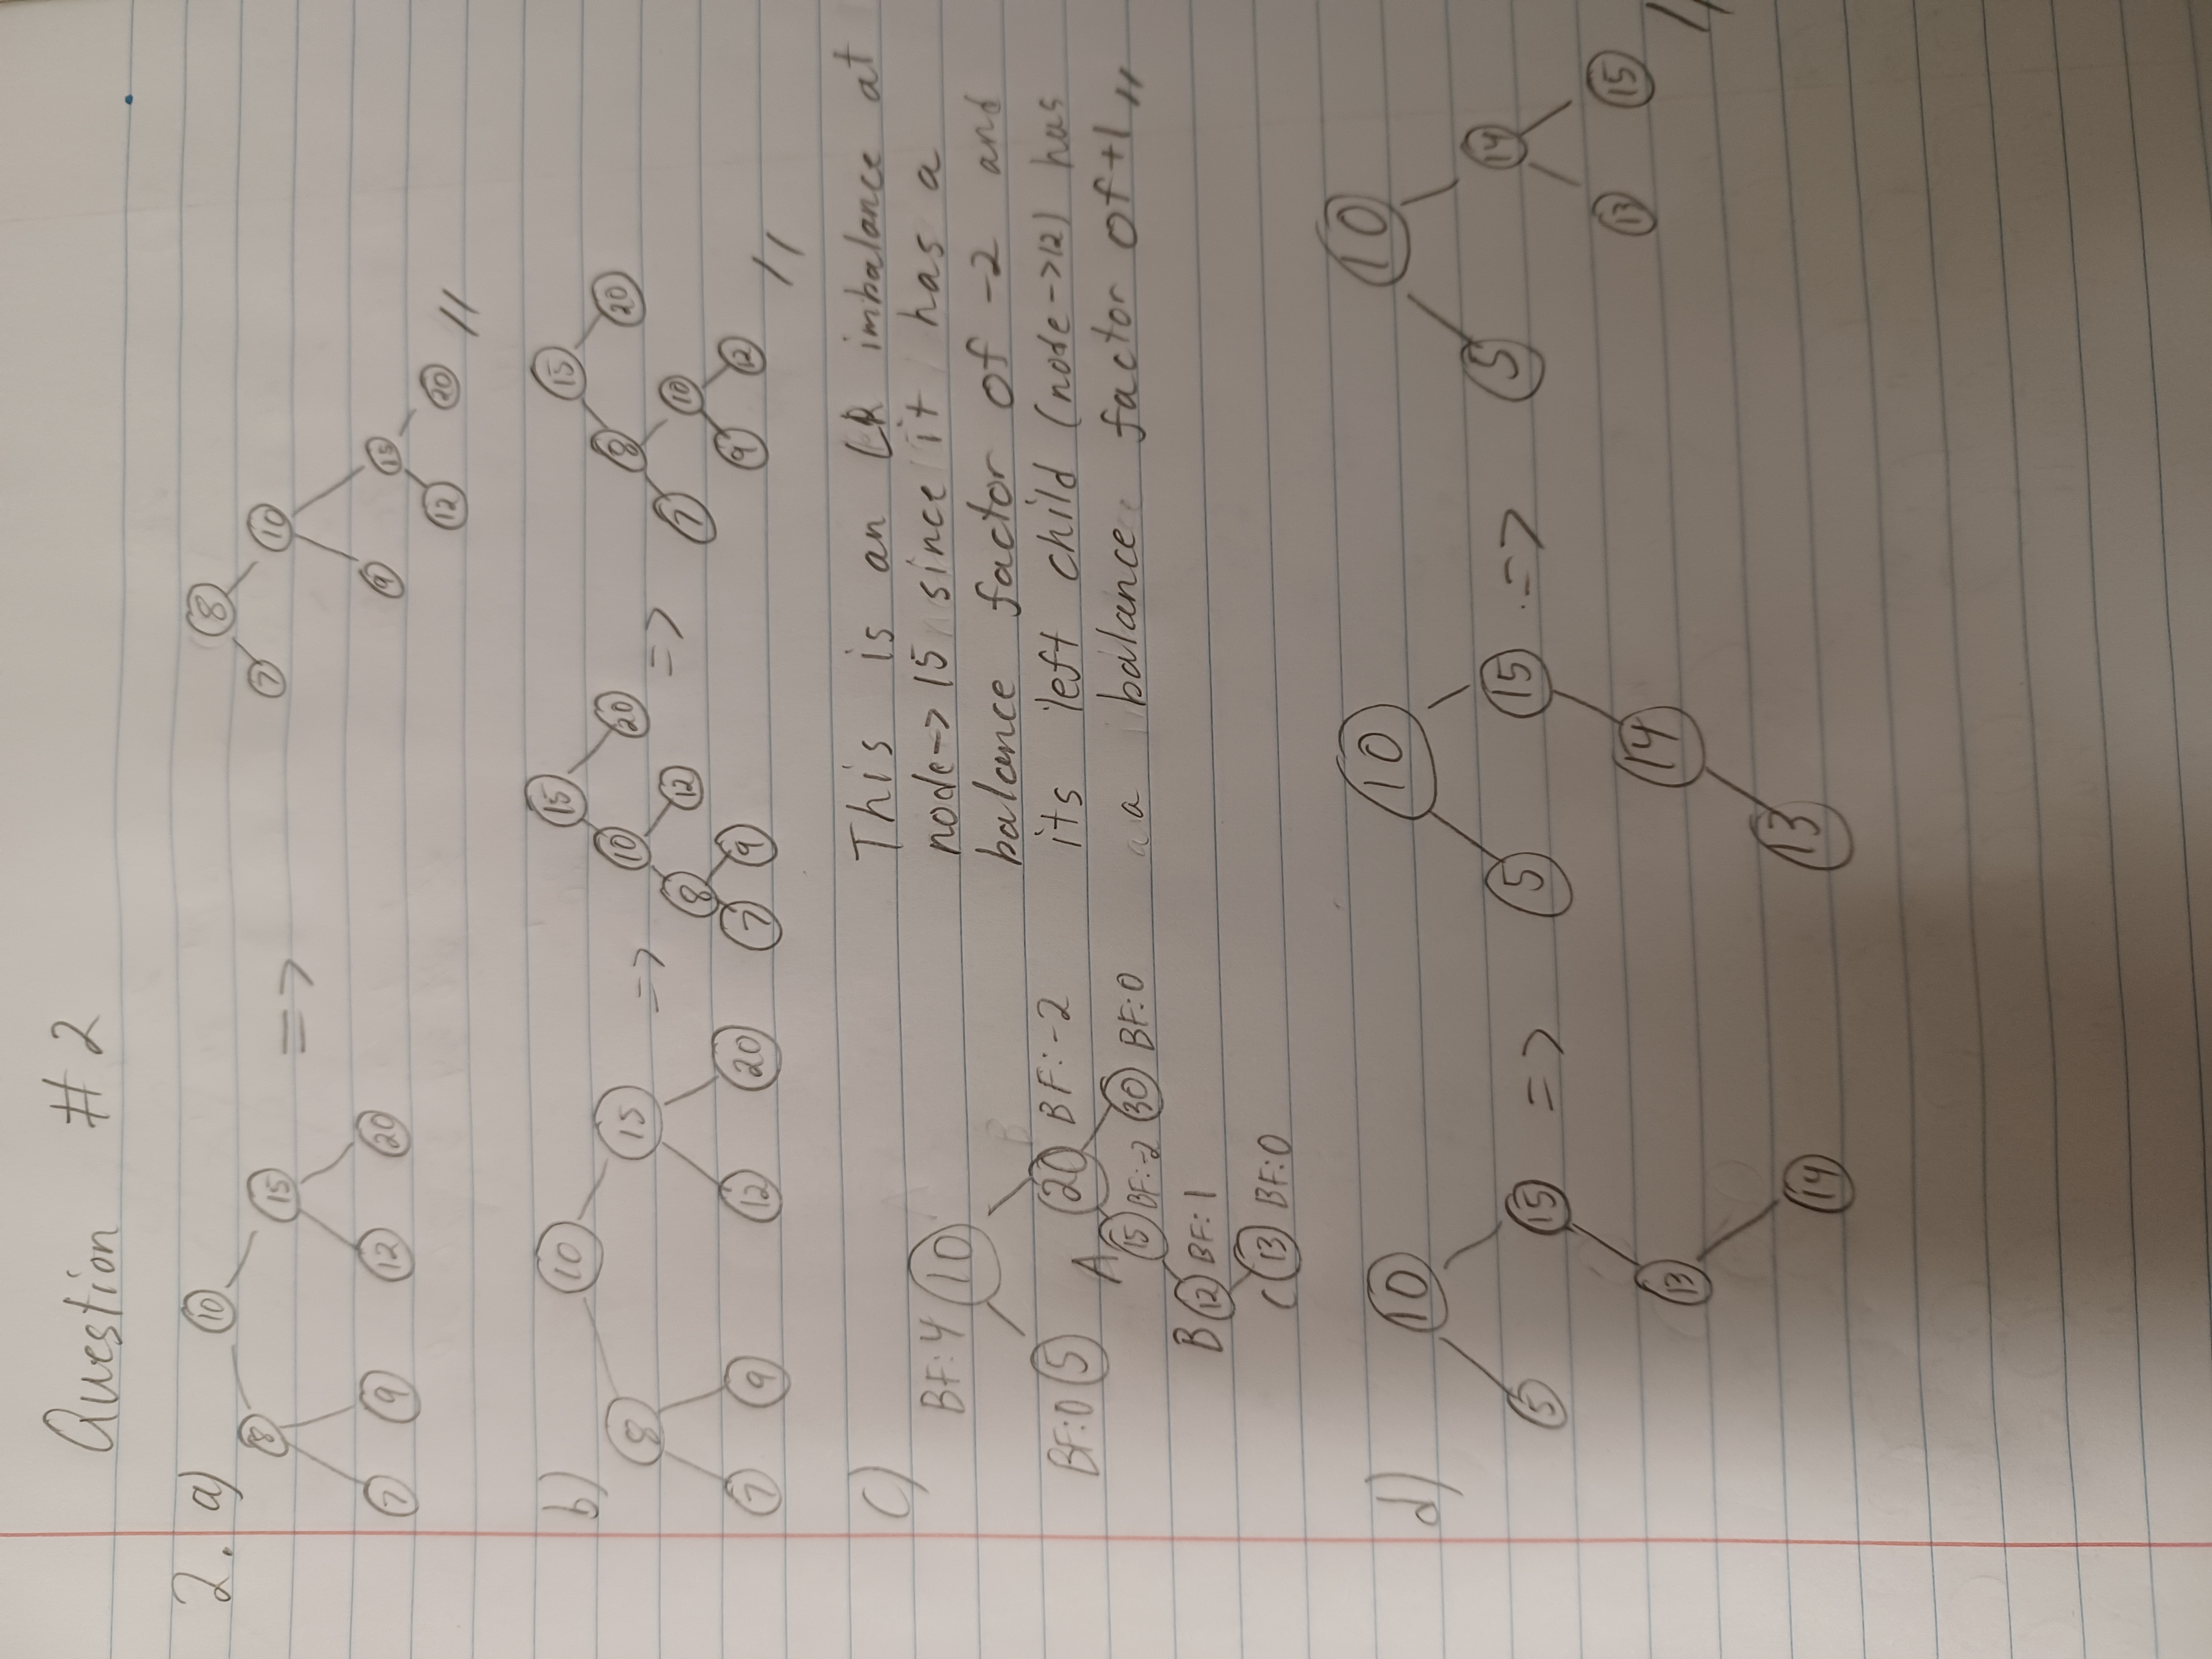 Question #2
2. a)
10
8 15
7 9 12 20
=>
8
7 10
9 15
12 20 //
b)
10
8 15
7 9 12 20
=>
15
10 20
8 12
7 9
=>
15
8 20
7 10
9 12 //
c)
BF:4 10
BF:0 5 20 BF:-2
A 15 BF:-2 30 BF:0
B 12 BF:1
C 13 BF:0
This is an LR imbalance at
node->15 since it has a
balance factor of -2 and
its left child (node->12) has
a balance factor of +1 //
d)
10
5 15
13
14
=>
10
5 15
14
13
=>
10
5 14
13 15 //